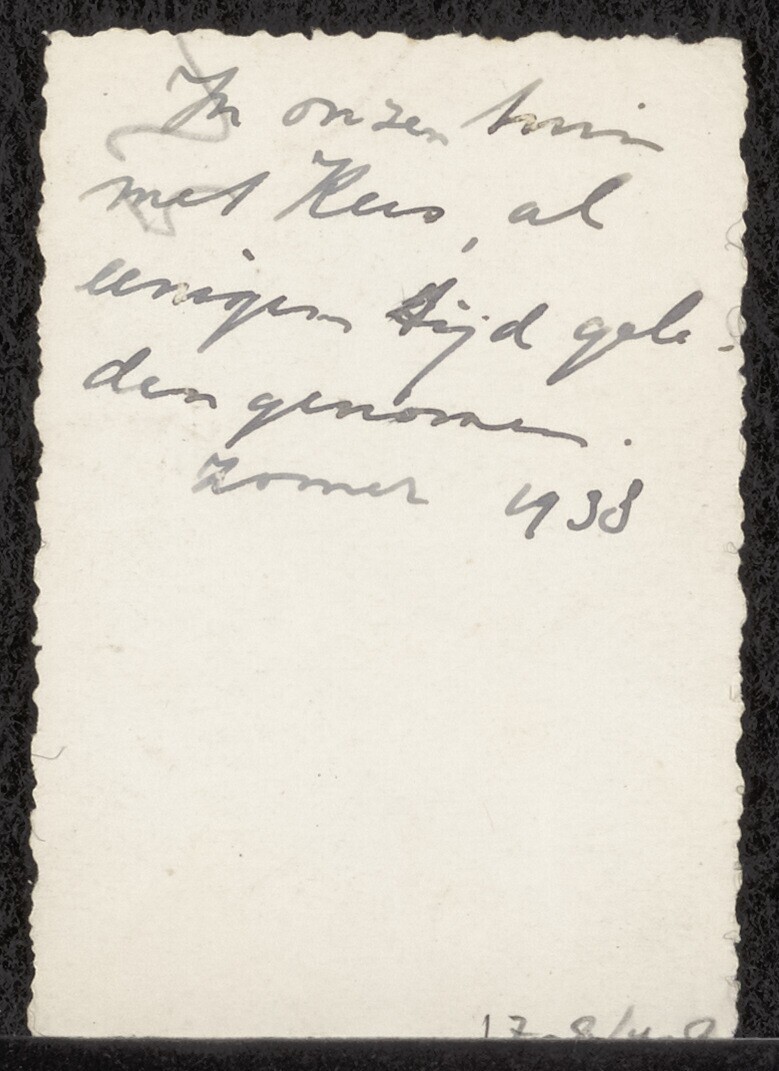 In onzen tuin
met Kees, al
eenigen tijd gele-
den genomen.
Zomer 1938